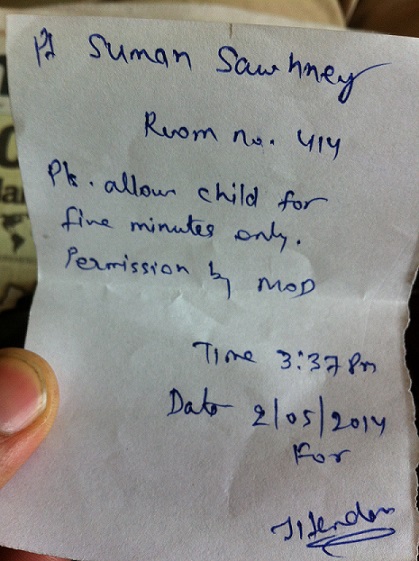 Pt Suman Sawhney
Room no. 414
Pls. allow child for
five minutes only.
Permission by MOD
Time 3:37 Pm
Date 2/05/2014
For